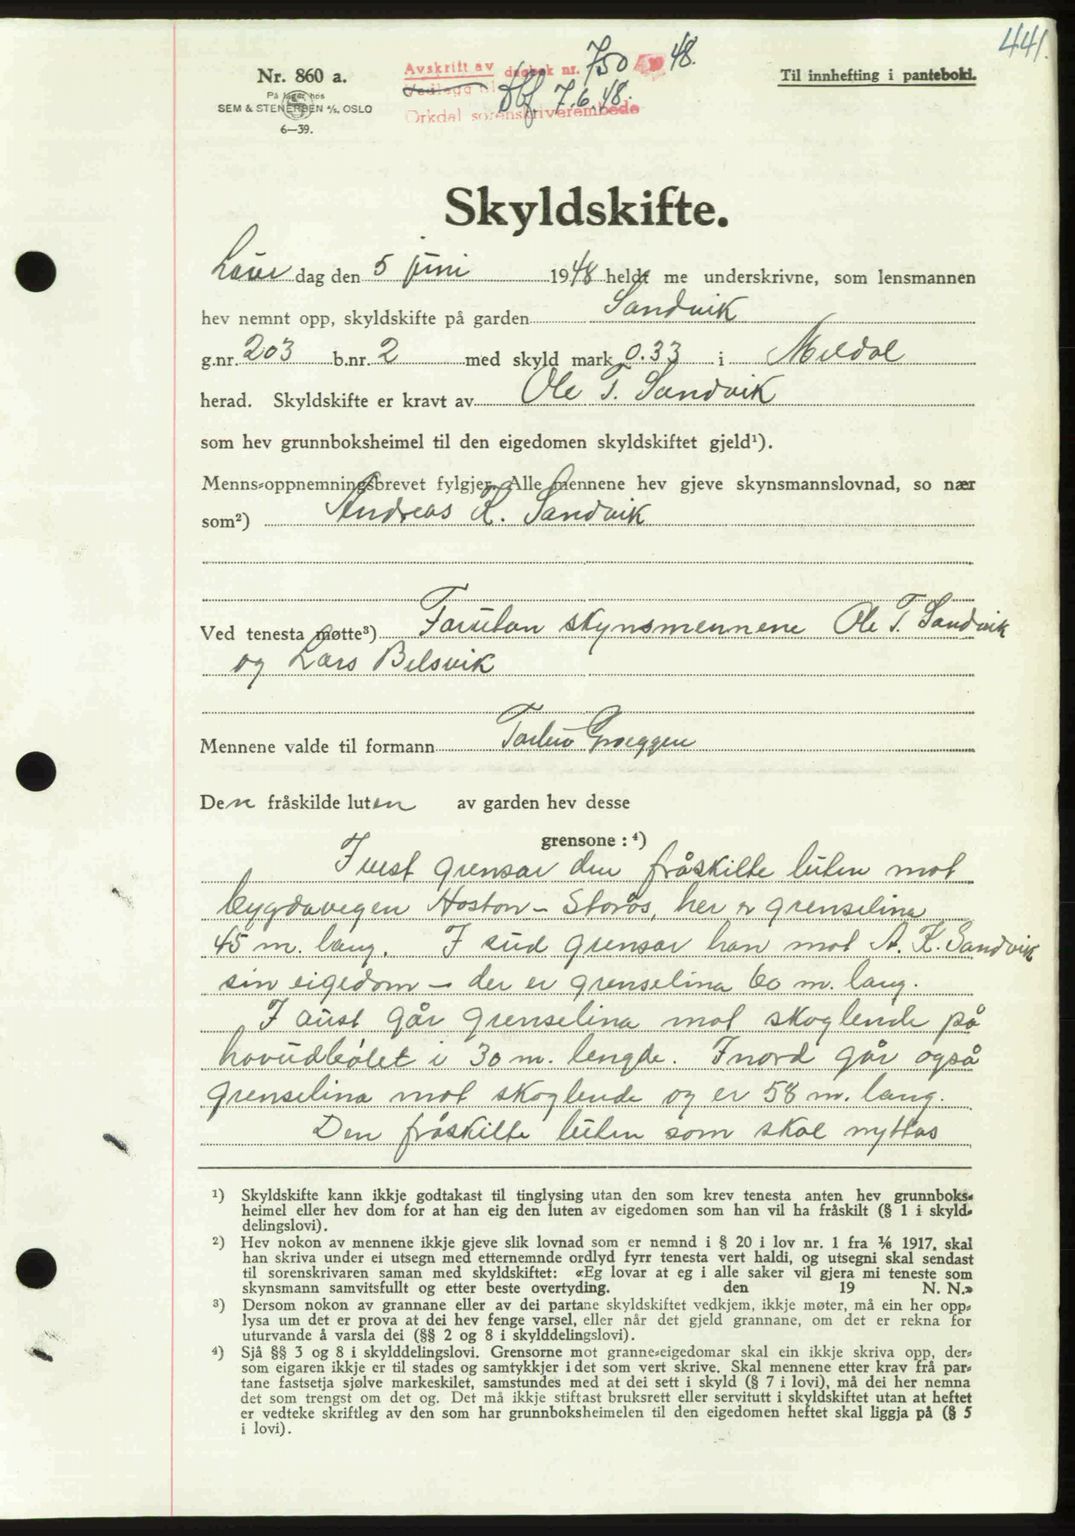 441.
Nr. 860 a.
På lager hos
SEM & STENERSEN A/S, OSLO
6—39.
Avskrift av dagbok nr. 750 48.
Vedlegg til Dbf. 7.6.48.
Orkdal sorenskriverembede
Til innhefting i pantebok.
Skyldskifte.
Laur dag den 5 juni 1948 heldt me underskrivne, som lensmannen
hev nemnt opp, skyldskifte på garden Sandvik
g.nr. 203 b.nr. 2 med skyld mark 0.33 i Meldal
herad. Skyldskifte er kravt av Ole T. Sandvik
som hev grunnboksheimel til den eigedomen skyldskiftet gjeld¹).
Menns-oppnemningsbrevet fylgjer. Alle mennene hev gjeve skynsmannslovnad, so nær
som²) Andreas K. Sandvik
Ved tenesta møtte³) Forutan skynsmennene Ole T. Sandvik
og Lars Belsvik
Mennene valde til formann Torleiv Groeggen
Den fråskilde luten av garden hev desse
grensone : ⁴)
I vest grensar den fråskilte luten mot
bygdavegen Hoston - Storås, her er grenselina
45 m. lang. I sud grensar han mot A. K. Sandvik
sin eigedom - der er grenselina 60 m. lang.
I aust går grenselina mot skoglende på
hovudbølet i 30 m. lengde. I nord går også
grenselina mot skoglende og er 58 m. lang.
Den fråskilte luten som skal nyttas
¹) Skyldskifte kann ikkje godtakast til tinglysing utan den som krev tenesta anten hev grunnboks-
heimel eller hev dom for at han eig den luten av eigedomen som han vil ha fråskilt (§ 1 i skyld-
delingslovi).
²) Hev nokon av mennene ikkje gjeve slik lovnad som er nemnd i § 20 i lov nr. 1 fra 1/6 1917, skal
han skriva under ei utsegn med etternemnde ordlyd fyrr tenesta vert haldi, og utsegni skal sendast
til sorenskrivaren saman med skyldskiftet: «Eg lovar at eg i alle saker vil gjera mi teneste som
skynsmann samvitsfullt og etter beste overtyding. den 19 N. N.»
³) Dersom nokon av grannane eller av dei partane skyldskiftet vedkjem, ikkje møter, må ein her opp-
lysa um det er prova at dei hev fenge varsel, eller når det gjeld grannane, om det er rekna for
uturvande å varsla dei (§§ 2 og 8 i skylddelingslovi).
⁴) Sjå §§ 3 og 8 i skylddelingslovi. Grensorne mot granne-eigedomar skal ein ikkje skriva opp, der-
som eigaren ikkje er til stades og samtykkjer i det som vert skrive. Skal mennene etter krav frå par-
tane fastsetja sjølve markeskilet, samstundes med at dei sett i skyld (§ 7 i lovi), må dei her nemna
det som trengst om det og. Det må ikkje stiftast bruksrett eller servitutt i skyldskiftet utan at heftet
er vedteke skriftleg av den som har grunnboksheimelen til den eigedomen heftet skal liggja på (§ 5
i lovi).